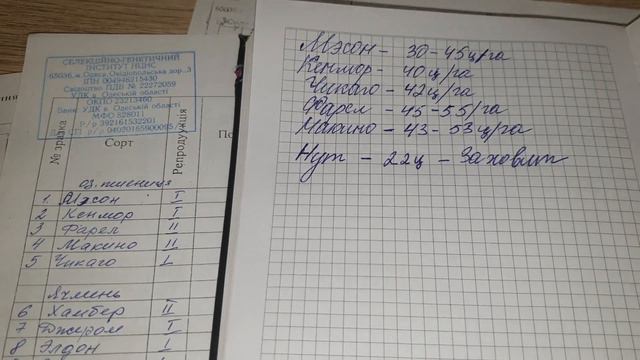 СЕЛЕКЦІЙНО-ГЕНЕТИЧНИЙ
ІНСТИТУТ НЦНС
65036, м.Одеса, Овідіопольська дор.,3
ІПН 004948215430
Свідоцтво ПДВ № 22272059
УДК в Одеській області
ОКПО 23213460
Банк: УДК в Одеській області
МФО 828011
Р/р 392161532201
№ зразка
Сорт
Репродукція
По
оз. пшениця
1 Мэсон I
2 Кенмор I
3 Фарел II
4 Макино II
5 Чикаго I
Ячмень
6 Хамбер II
7 I
8 Элдон I
Мэсон - 30-45ц/га
Кенмор - 40ц/га
Чикаго - 42ц/га
Фарел - 45-55/га
Макино - 43-53ц/га
Нут - 22ц -